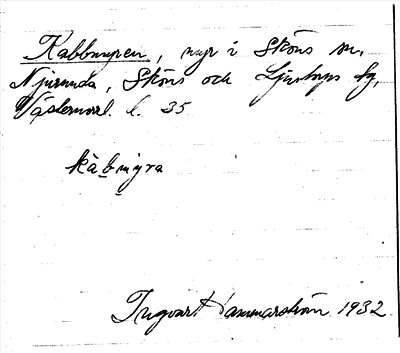 Kabbmyren, myr i Sköns sn,
Njurunda, Sköns och Ljustorps tg,
Västernorrl. l. 35
kàbmỳra
Ingvar Hammarström 1932